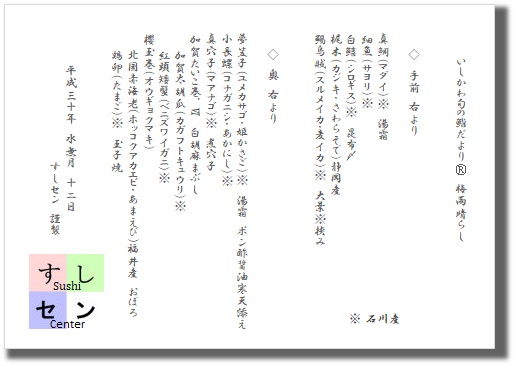 いしかわ旬の鮨だより® 梅雨晴らし
◇ 手前 右より
真鯛(マダイ)※ 湯霜
細魚(サヨリ)※
白鱚(シロギス)※ 昆布〆
梶木(カジキ・さわらそて)静岡産
鯣烏賊(スルメイカ・麦イカ)※ 大葉※挟み
◇ 奥 右より
夢笠子(ユメカサゴ・姫かさご)※ 湯霜 ポン酢醤油寒天添え
小長螺(コナガニシ・あかにし)※
真穴子(マアナゴ)※ 煮穴子
加賀たいこ巻、四 白胡麻まぶし
加賀太胡瓜(カガフトキュウリ)※
紅頭矮蟹(ベニズワイガニ)※
櫻玉巻(オウギョクマキ)
北国赤海老(ホッコクアカエビ・あまえび)福井産 おぼろ
鶏卵(たまご)※ 玉子焼
平成三十年 水無月 十二日
すしセン 謹製
※ 石川産
すし
Sushi
セン
Center